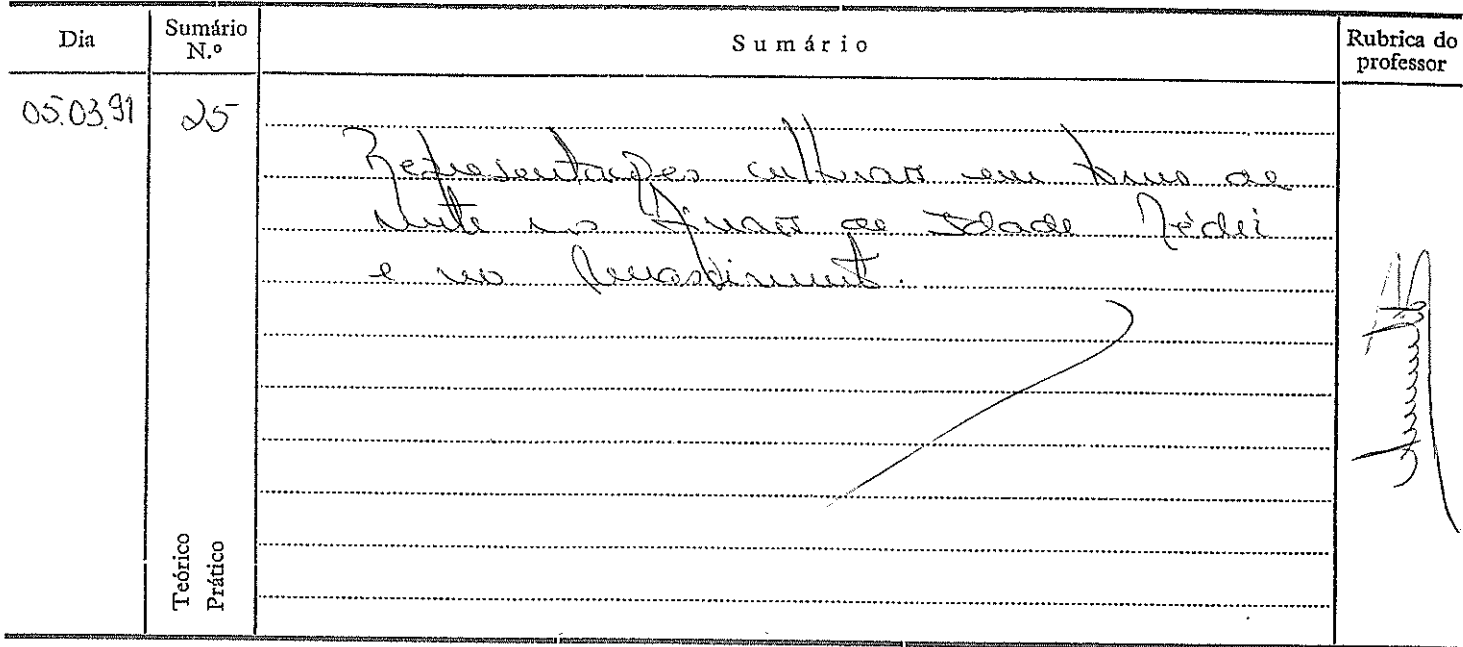 Dia Sumário N.º Sumário Rubrica do professor
05.03.91 25
Representações culturais em torno da
morte nos finais da Idade Média
e no Renascimento.
Teórico
Prático